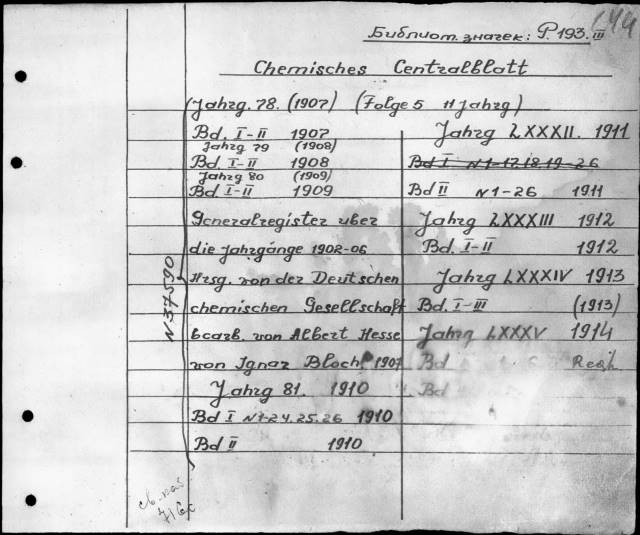 144
Библиот. значек: P. 193. III
Chemisches Centralblatt
(Jahrg. 78. (1907) (Folge 5 11 Jahrg)
Bd. I-II 1907
Jahrg 79 (1908)
Bd. I-II 1908
Jahrg 80 (1909)
Bd. I-II 1909
Generalregister uber
die Jahrgänge 1902-06
Hrsg. von der Deutschen
chemischen Gesellschaft
bearb. von Albert Hesse
von Ignaz Bloch 1907
Jahrg 81. 1910
Bd I N 1-24. 25. 26 1910
Bd II 1910
Jahrg LXXXII. 1911
Bd I N 1-17 18 19-26
Bd II N 1-26 1911
Jahrg LXXXIII 1912
Bd. I-II 1912
Jahrg LXXXIV 1913
Bd. I-III (1913)
Jahrg LXXXV 1914
Bd
Bd
N 37590